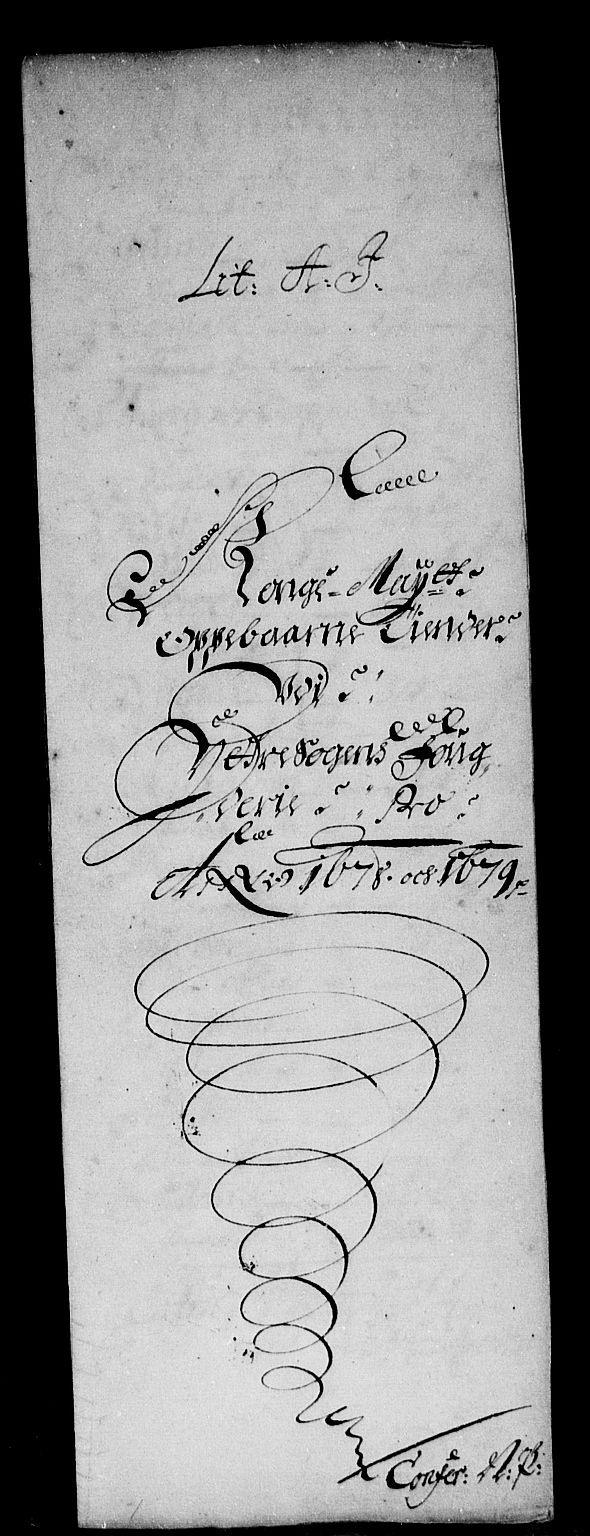 Lit: A: J:
Kongs- Maÿtts:
Oppebaarne Tiender
Vdj
Nedresogens Foug
derie: Pro
Anno 1678. och 1679
Confer: N: P: